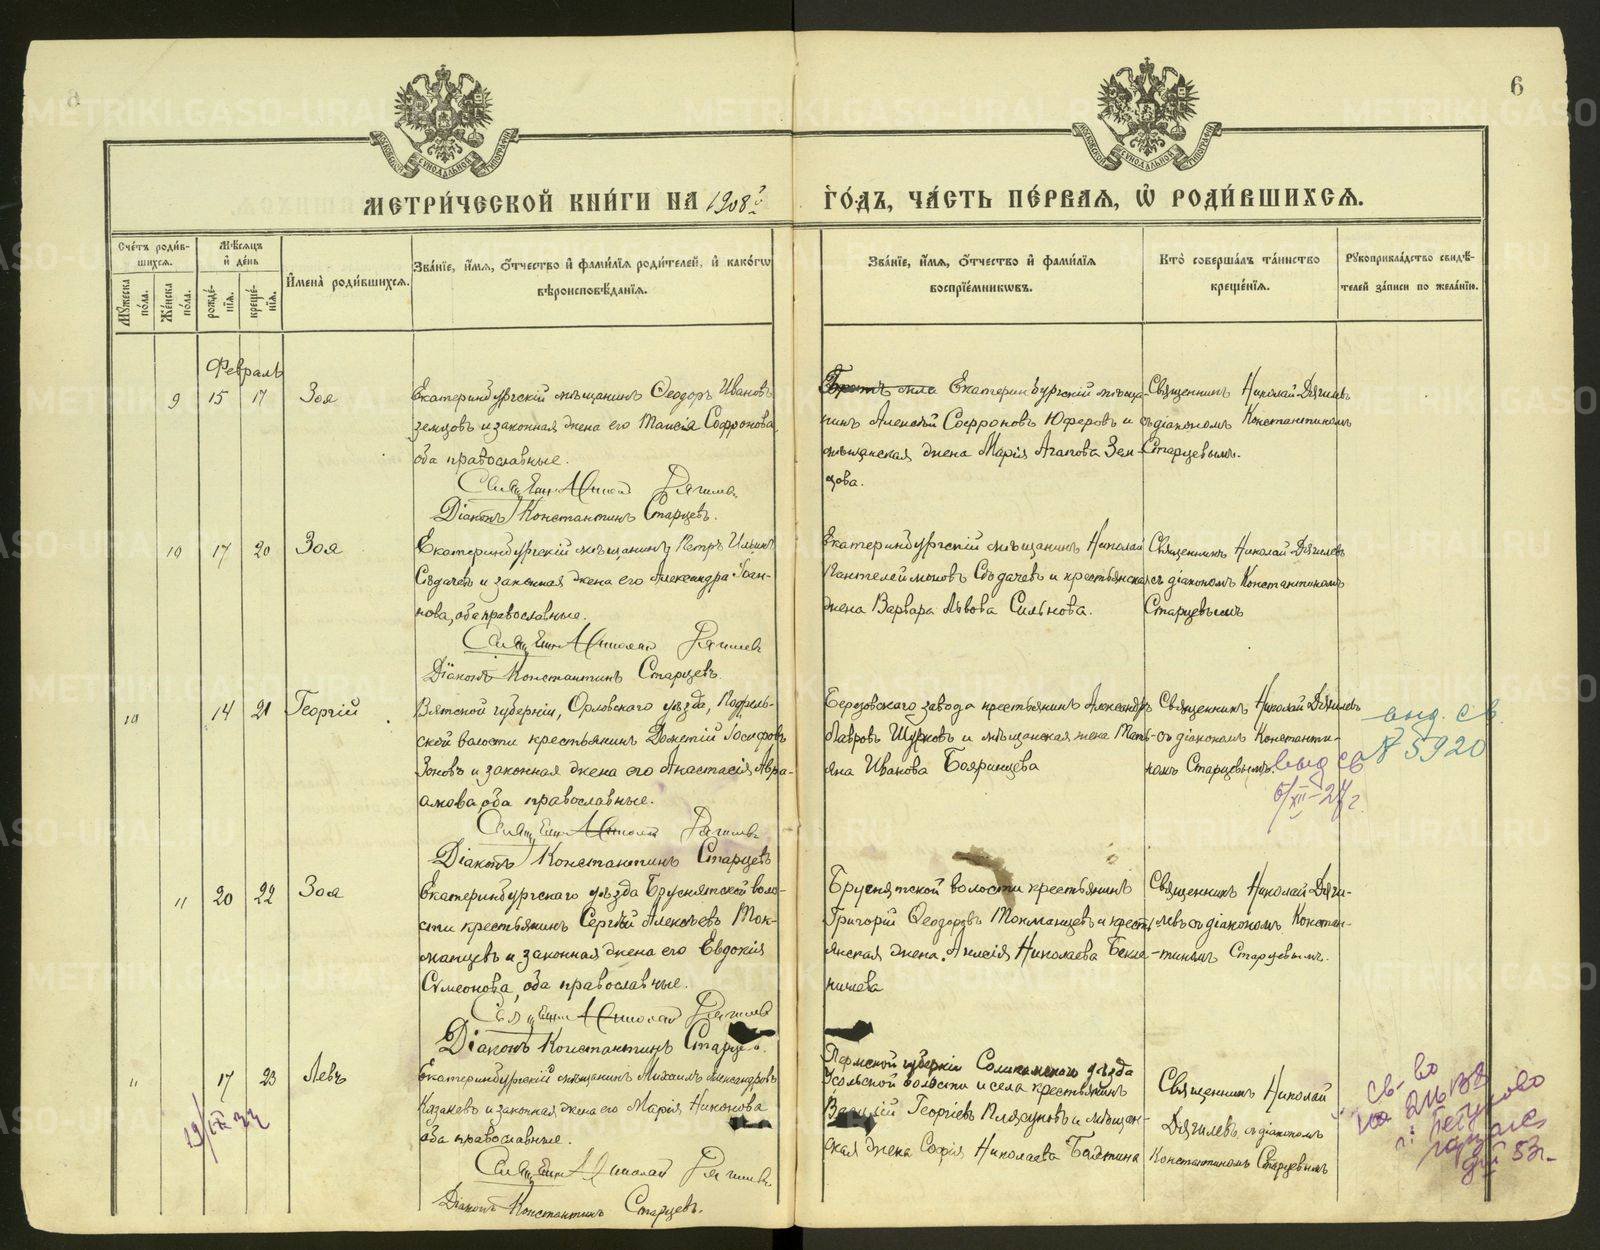 6
МЕТРИ́ЧЕСКОЙ КНИ́ГИ НА 1908 й
ГО́ДЪ, ЧА́СТЬ ПЕ́РВАѦ, Ѽ РОДИ́ВШИХСѦ.
Сче́тъ роди́в-
шихсѧ.
Мѣ́сѧцъ
и҆ де́нь
И҆мена̀ роди́вшихсѧ.
Зва́нїе, и҆́мѧ, ѻ҆́тчество и҆ фами́лїѧ роди́телей, и҆ како́гѡ
вѣроисповѣ́данїѧ.
Мꙋ́жеска
по́ла.
Же́нска
по́ла.
рожде́-
нїѧ.
креще́-
нїѧ.
Зва́нїе, и҆́мѧ, ѻ҆́тчество и҆ фами́лїѧ
воспрїе́мникѡвъ.
Кто̀ соверша́лъ та́инство
креще́нїѧ.
Рꙋкоприкла́дство свидѣ́-
телей за́писи по жела́нїю.
Февраль
9 15 17 Зоя
Екатеринбургскій мѣщанинъ Ѳеодоръ Ивановъ
Земцовъ и законная жена его Таисія Софронова,
оба православные.
Священникъ Николай Дягилевъ
Діаконъ Константинъ Старцевъ.
Екатеринбургскій мѣща-
нинъ Алексѣй Софроновъ Юферовъ и
мѣщанская жена Марія Агапова Зем-
цова.
Священникъ Николай Дягилевъ
съ діакономъ Константиномъ
Старцевымъ.
10 17 20 Зоя
Екатеринбургскій мѣщанинъ Петръ Ильинъ
Сѣдачевъ и законная жена его Александра Іоан-
нова, оба православные.
Священникъ Николай Дягилевъ
Діаконъ Константинъ Старцевъ.
Екатеринбургскій мѣщанинъ Николай
Пантелеймоновъ Сѣдачевъ и крестьянская
жена Варвара Львова Сильнова.
Священникъ Николай Дягилевъ
съ діакономъ Константиномъ
Старцевымъ
10 14 21 Георгій
Вятской губерніи, Орловскаго уѣзда,
ской волости крестьянинъ Дометій Іосифовъ
Зоновъ и законная жена его Анастасія Авра-
амова, оба православные.
Священникъ Николай Дягилевъ
Діаконъ Константинъ Старцевъ
Березовскаго завода крестьянинъ Александръ
Лавровъ Шурковъ и мѣщанская жена Тать-
яна Иванова Бояринцева
Священникъ Николай Дягилевъ
съ діакономъ Константи-
номъ Старцевымъ.
выд. св.
№ 5920
выд св
6/XII-27 г.
11 20 22 Зоя
Екатеринбургскаго уѣзда Бруснятской воло-
сти крестьянинъ Сергѣй Алексѣевъ Ток-
манцевъ и законная жена его Евдокія
Сѵмеонова, оба православные.
Священникъ Николай Дягилевъ
Діаконъ Константинъ Старцевъ.
Бруснятской волости крестьянинъ
Григорій Ѳеодоровъ Токманцевъ и кресть-
янская жена Анисія Николаева Бекле-
мишева
Священникъ Николай Дяги-
левъ съ діакономъ Констан-
тиномъ Старцевымъ.
11 17 23 Левъ
Екатеринбургскій мѣщанинъ Михаилъ Александровъ
Казаковъ и законная жена его Марія Никонова
оба православные.
Священникъ Николай Дягилевъ
Діаконъ Константинъ Старцевъ.
Пермской губерніи Соликамскаго уѣзда
Усольской волости и села крестьянинъ
Василій Георгіевъ Плясуновъ и мѣщан-
ская жена Софія Николаева Балтина
Священникъ Николай
Дягилевъ съ діакономъ
Константиномъ Старцевымъ
19/IX 22
св-во
53 г.
METRIKI.GASO-URAL.RU